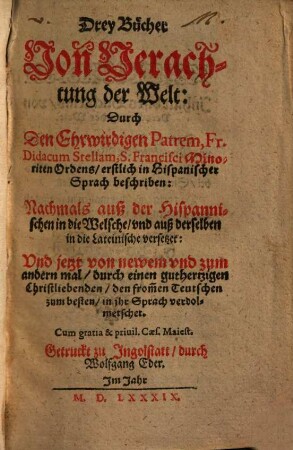 Drey Bücher
Von Verach-
tung der Welt:
Durch
Den Ehrwirdigen Patrem, Fr.
Didacum Stellam, S. Francisci Mino-
riten Ordens/ erstlich in Hispanischer
Sprach beschriben:
Nachmals auß der Hispanni-
schen in die Welsche/ vnd auß derselben
in die Lateinische versetzet:
Vnd jetzt von newem vnd zum
andern mal/ durch einen guthertzigen
Christliebenden/ den from̃en Teutschen
zum besten/ in jhr Sprach verdol-
metschet.
Cum gratia & priuil. Cæs. Maiest.
Getruckt zu Ingolstatt/ durch
Wolfgang Eder.
Im Jahr
M. D. LXXXIX.